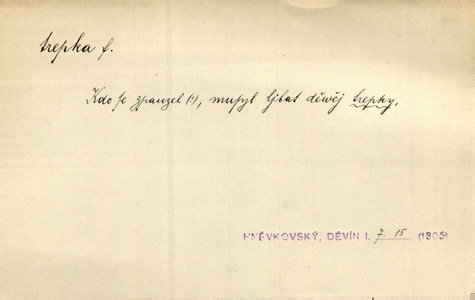 trepka f.
Kdo se zpauzel (!), musyl ljbat děwěj trepky.
HNĚVKOVSKÝ, DĚVÍN I. 7. 15 (1805)